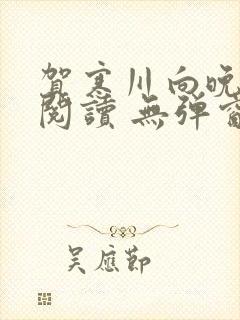 賀寒川向晚
閱讀 無彈窗
吳應節